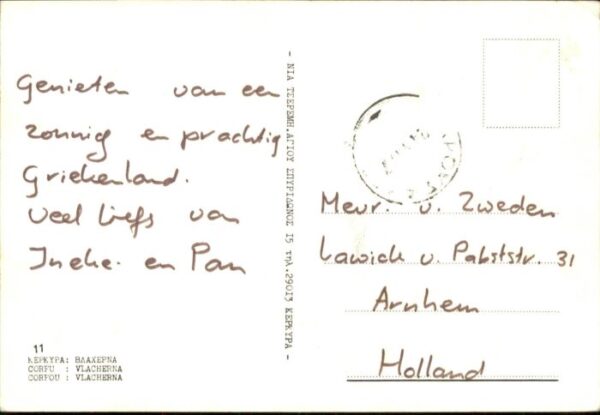 Genieten van een
zonnig en prachtig
Griekenland.
Veel liefs van
Ineke. en Pan
11
ΚΕΡΚΥΡΑ: ΒΛΑΧΕΡΝΑ
CORFU : VLACHERNA
CORFOU : VLACHERNA
- ΝΙΑ ΤΣΕΡΕΜΗ.ΑΓΙΟΥ ΣΠΥΡΙΔΩΝΟΣ 15 τηλ.29013 ΚΕΡΚΥΡΑ -
Mevr. v. Zweden
Lawick v. Pabststr. 31
Arnhem
Holland